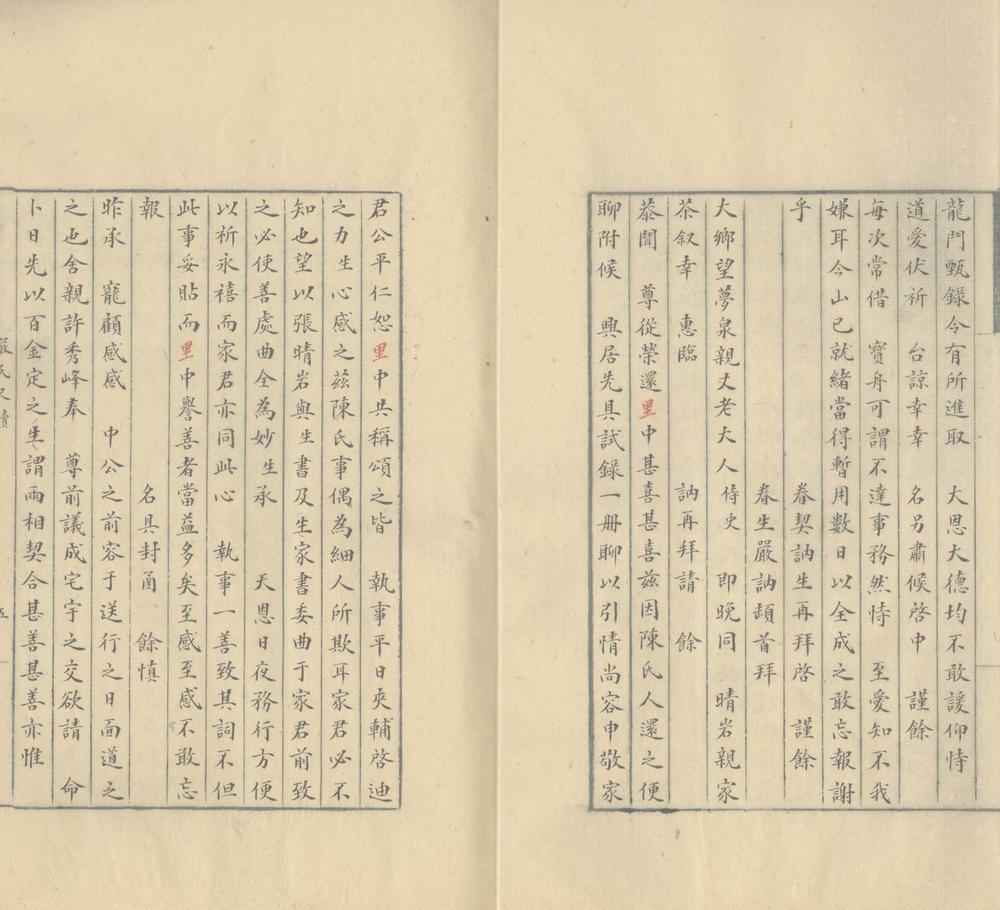 龍門甄錄今有所進取　大恩大德均不敢諼仰恃
道愛伏祈　台諒幸幸　名另肅候啓中　謹餘
每次常借　寶舟可謂不達事務然恃　至愛知不我
嫌耳今山已就緒當得暫用數日以全成之敢忘報謝
乎　眷契訥生再拜啓　謹餘
眷生嚴訥頓首拜
大鄉望夢泉親丈老大人侍史　即晚同　晴岩親家
茶叙幸　惠臨　訥再拜請　餘
恭聞　尊從榮還里中甚喜甚喜兹因陳氏人還之便
聊附候　興居先具試録一册聊以引情尚容申敬家
君公平仁恕里中共稱頌之皆　執事平日夾輔啓迪
之力生心感之茲陳氏事偶為細人所欺耳家君必不
知也望以張晴岩與生書及生家書委曲于家君前致
之必使善處曲全為妙生承　天恩日夜務行方便
以祈永禧而家君亦同此心　執事一善致其詞不但
此事妥貼而里中譽善者當益多矣至感至感不敢忘
報　名具封函　餘慎
昨承　寵顧感感　中公之前容于送行之日面道之
之也舍親許秀峰奉　尊前議成宅宇之交欲請　命
卜日先以百金定之生謂兩相契合甚善甚善亦惟
嚴氏
五